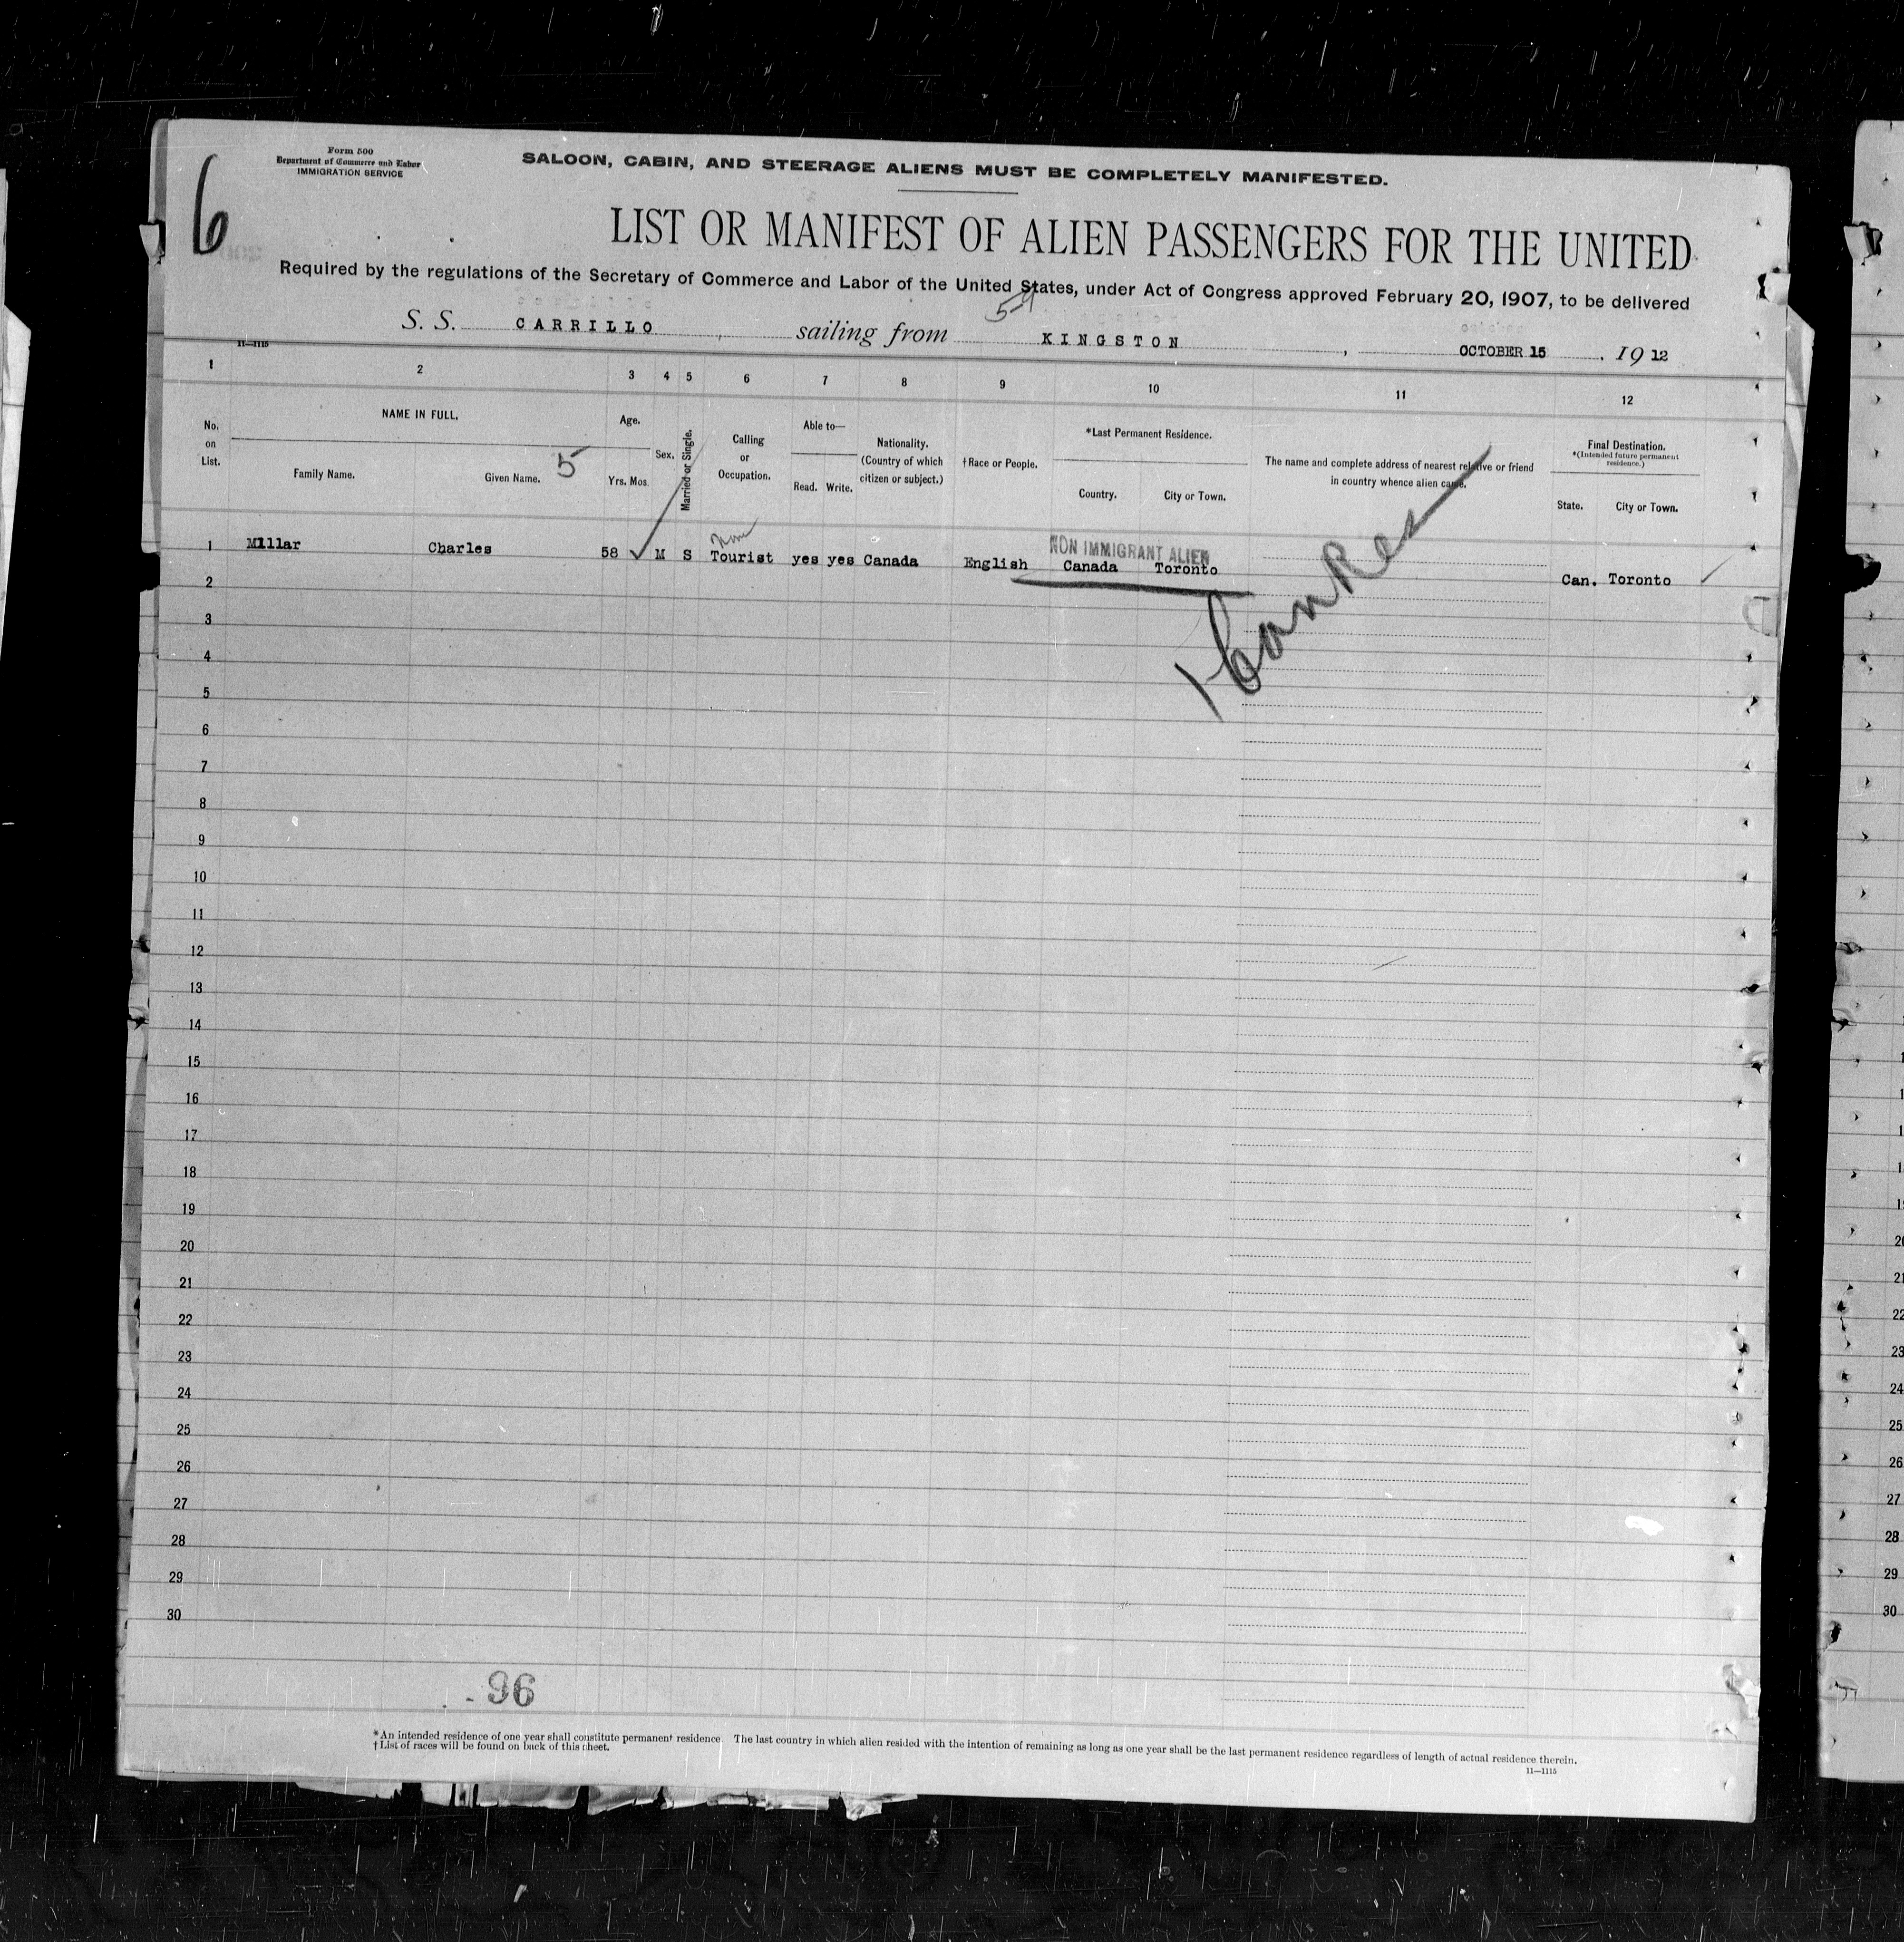 6
Form 500
Department of Commerce and Labor
IMMIGRATION SERVICE
SALOON, CABIN, AND STEERAGE ALIENS MUST BE COMPLETELY MANIFESTED.
LIST OR MANIFEST OF ALIEN PASSENGERS FOR THE UNITED
Required by the regulations of the Secretary of Commerce and Labor of the United States, under Act of Congress approved February 20, 1907, to be delivered
S. S. CARRILLO, sailing from KINGSTON, OCTOBER 15, 1912
11—1115
1 2 3 4 5 6 7 8 9 10 11 12
No. on List.
NAME IN FULL.
Family Name. Given Name. 5
Age.
Yrs. Mos.
Sex.
Married or Single.
Calling or Occupation.
Able to—
Read. Write.
Nationality.
(Country of which citizen or subject.)
†Race or People.
*Last Permanent Residence.
Country. City or Town.
The name and complete address of nearest relative or friend
in country whence alien came.
Final Destination.
*(Intended future permanent residence.)
State. City or Town.
NON IMMIGRANT ALIEN
1 Millar Charles 58 M S Tourist yes yes Canada English Canada Toronto Can. Toronto
2
3
4
5
6
7
8
9
10
11
12
13
14
15
16
17
18
19
20
21
22
23
24
25
26
27
28
29
30
96
*An intended residence of one year shall constitute permanent residence. The last country in which alien resided with the intention of remaining as long as one year shall be the last permanent residence regardless of length of actual residence therein.
†List of races will be found on back of this sheet.
11—1115